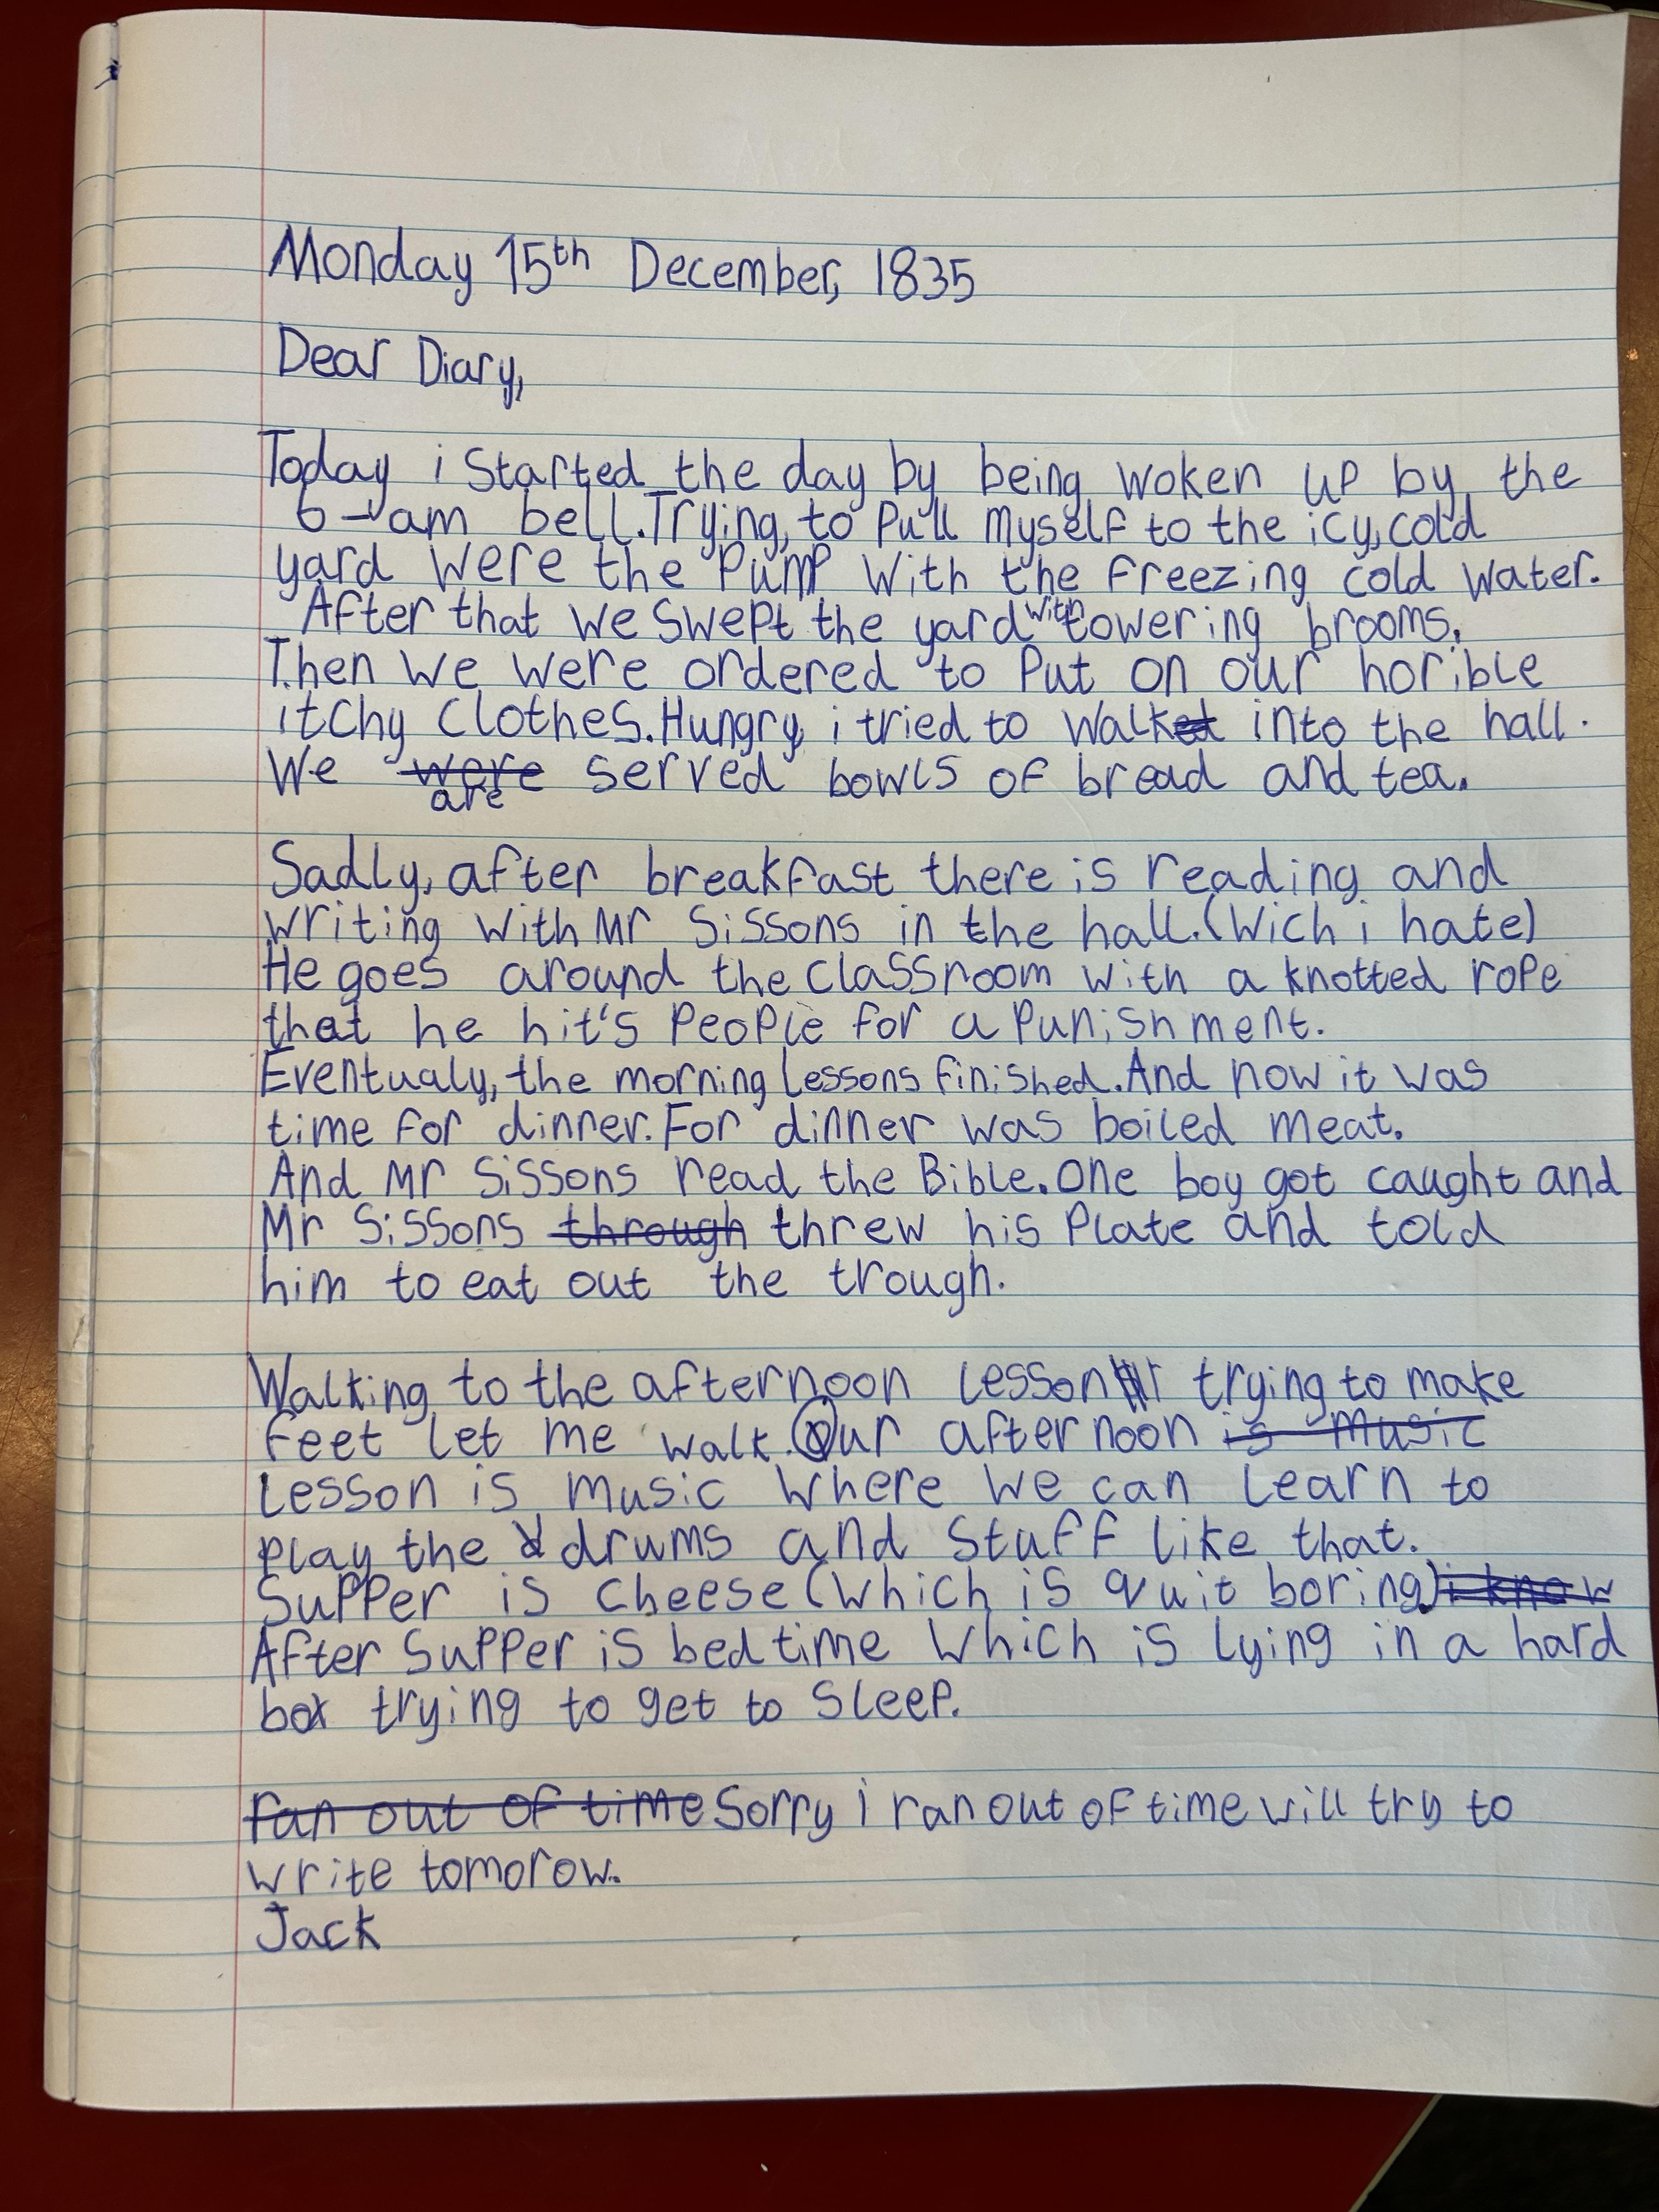 Monday 15th December, 1835
Dear Diary,
Today i started the day by being woken up by the
6-am bell. Trying, to pull myself to the icy, cold
yard were the pump with the freezing cold water.
After that we swept the yard with towering brooms.
Then we were ordered to put on our horible
itchy clothes. Hungry, i tried to walked into the hall.
We were are served bowls of bread and tea.
Sadly, after breakfast there is reading and
writing with Mr Sissons in the hall. (Wich i hate)
He goes around the classroom with a knotted rope
that he hit's people for a punishment.
Eventualy, the morning lessons finished. And now it was
time for dinner. For dinner was boiled meat.
And Mr Sissons read the Bible. One boy got caught and
Mr Sissons through threw his plate and told
him to eat out the trough.
Walking to the afternoon lesson trying to make
feet let me walk. Our afternoon is music
lesson is music where we can learn to
play the drums and stuff like that.
Supper is cheese (which is quit boring.) i know
After supper is bedtime which is lying in a hard
box trying to get to sleep.
ran out of time Sorry i ran out of time will try to
write tomorow.
Jack